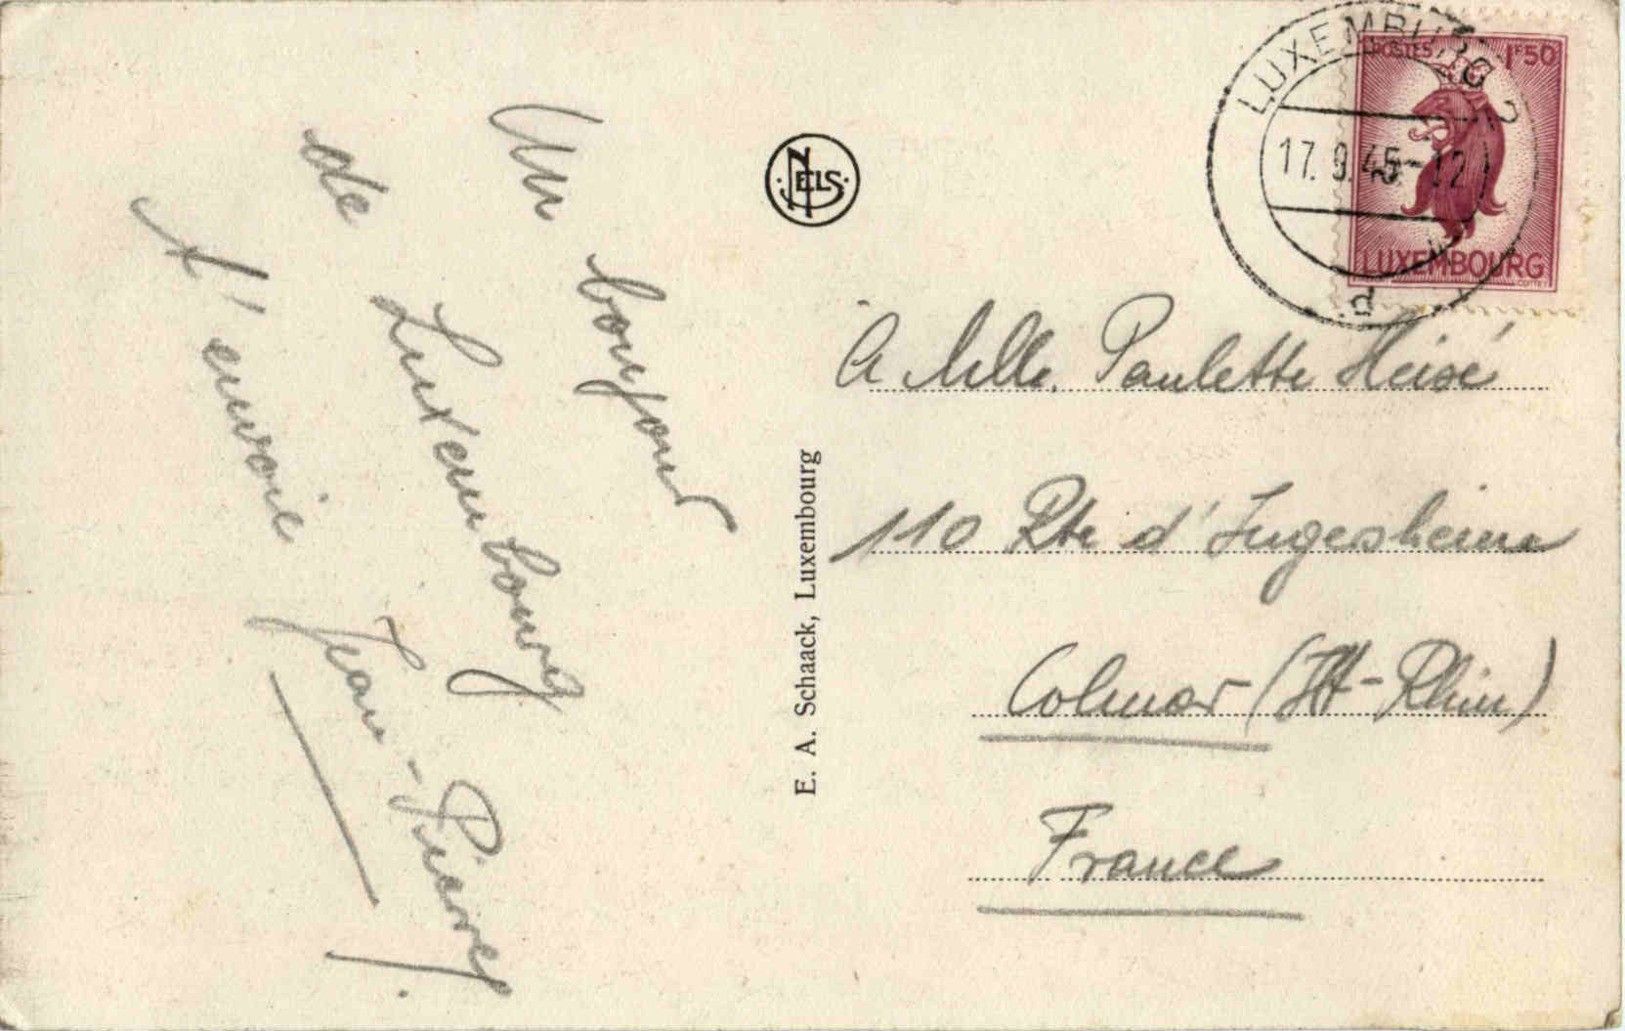 Un bonjour
de Luxembourg
t'envoie Jean-Pierre!
NELS
E. A. Schaack, Luxembourg
LUXEMBURG 2
17. 9. 45 - 12
d
POSTES 1F50
LUXEMBOURG
A Mlle. Paulette Heisé
110 Rte d'Ingesheim
Colmar (Ht-Rhin)
France